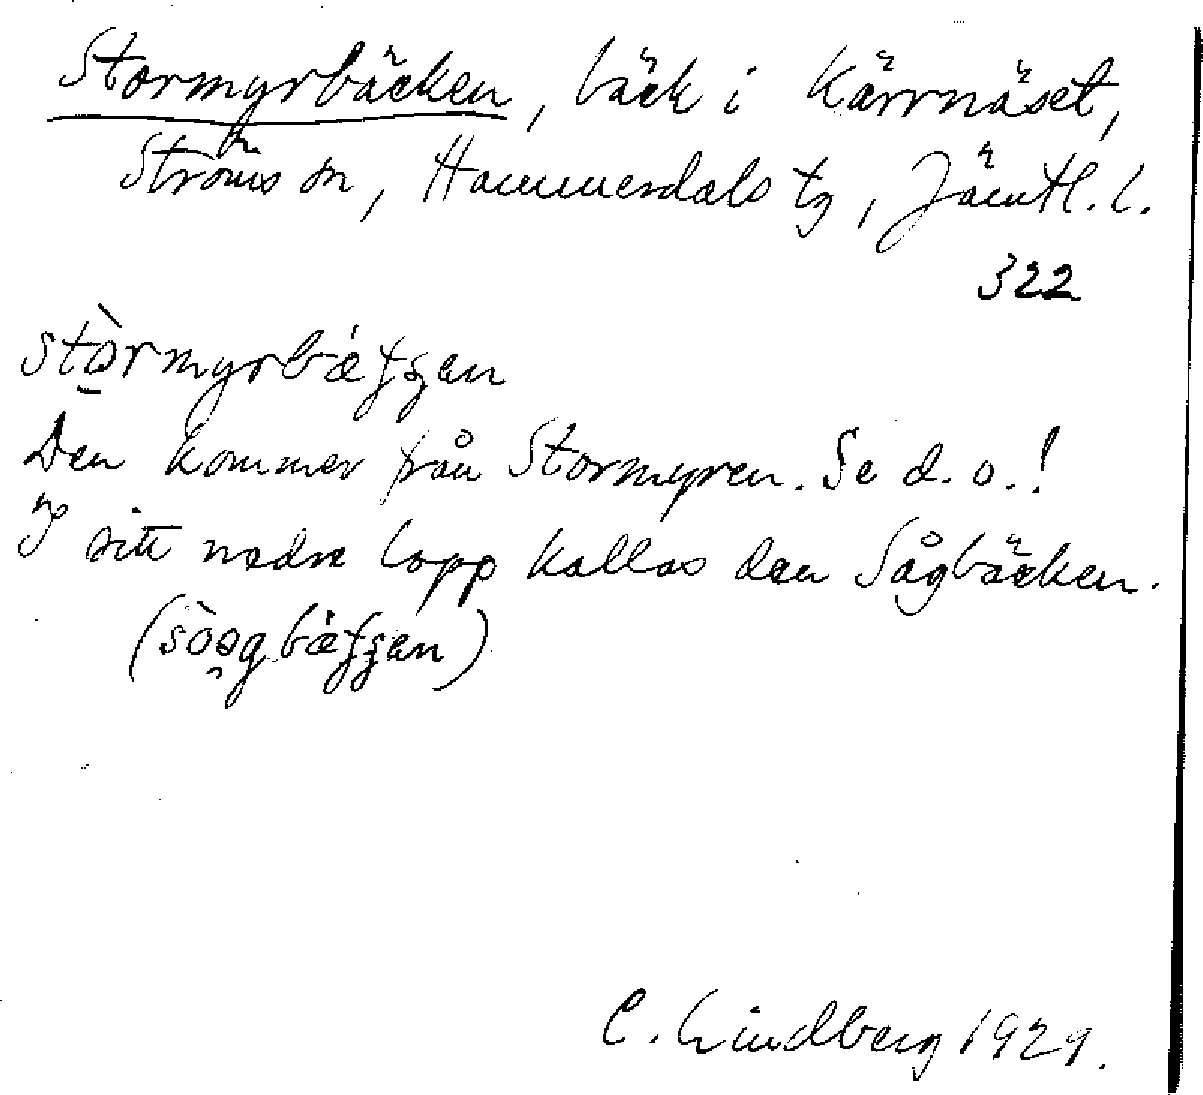 Stormyrbäcken, bäck i Kärrnäset,
Ströms sn, Hammerdals tg, Jämtl. l.
322
stòrmyrbǽʈʂen
Den kommer från Stormyren. Se d. o.!
I sitt nedre lopp kallas den Sågbäcken.
(sòəgbǽʈʂen)
C. Lindberg 1929.